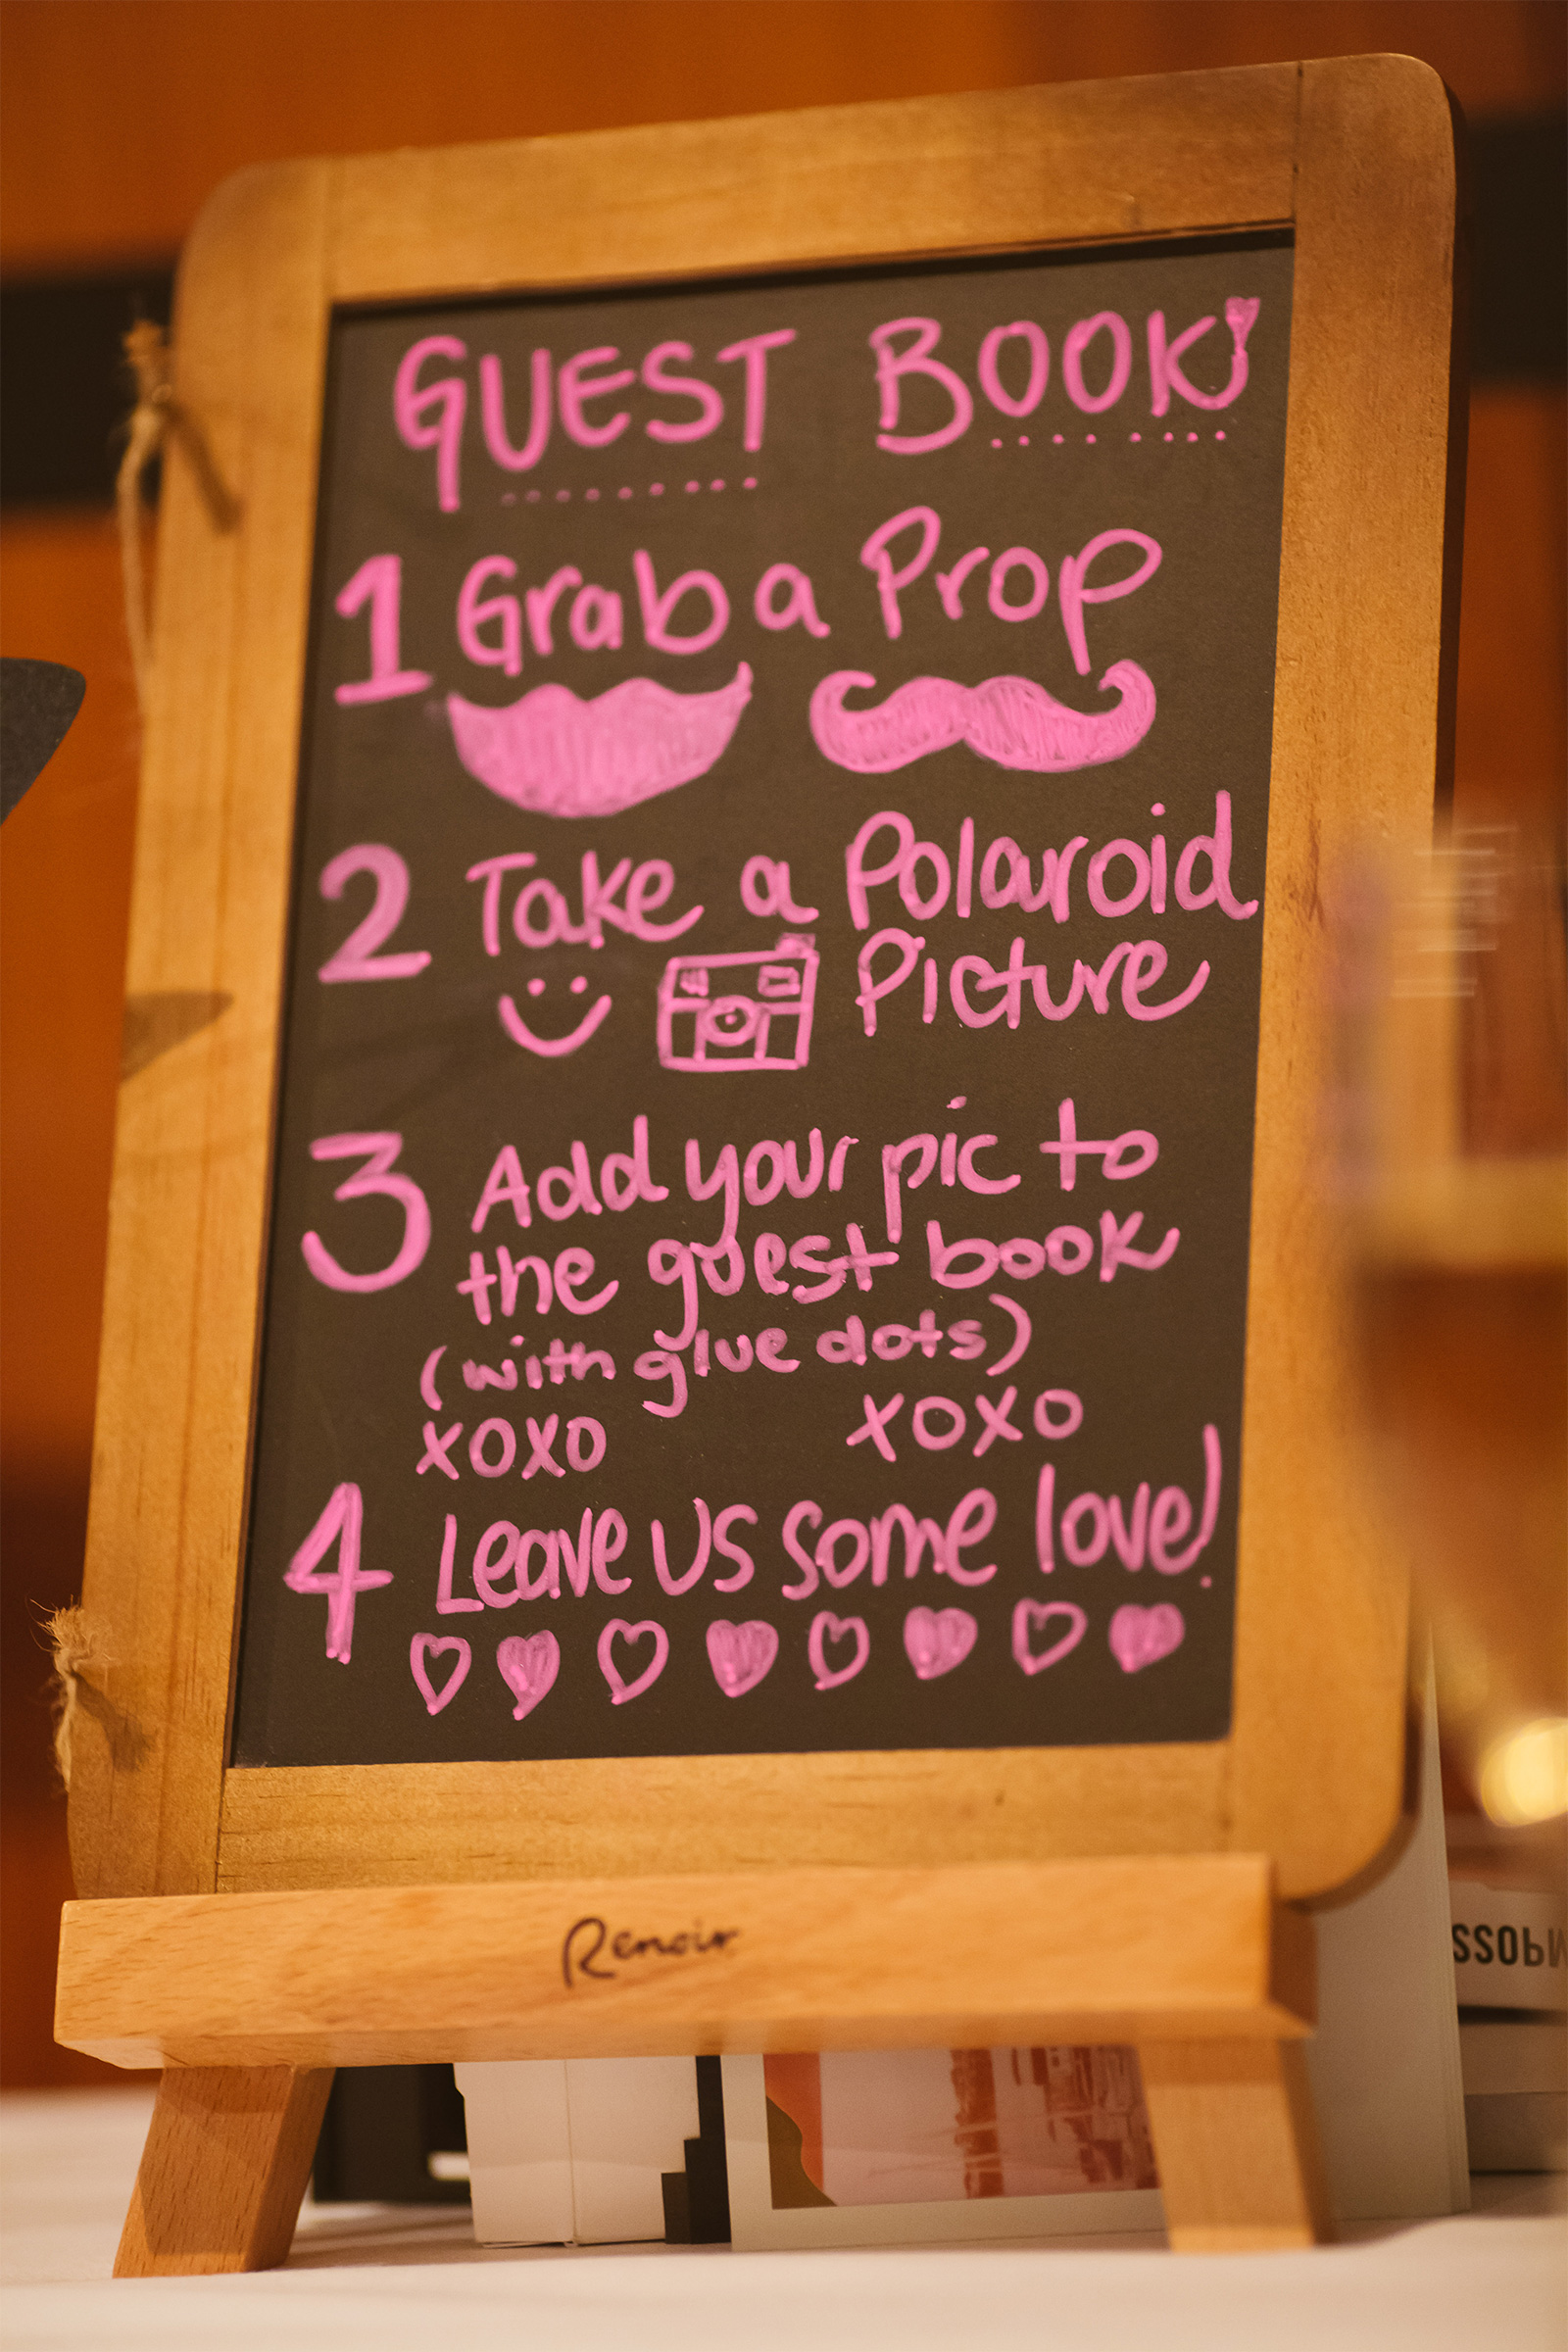 GUEST BOOK!
1 Grab a Prop
2 Take a Polaroid
Picture
3 Add your pic to
the guest book
(with glue dots)
XOXO XOXO
4 Leave us some love!
Renoir